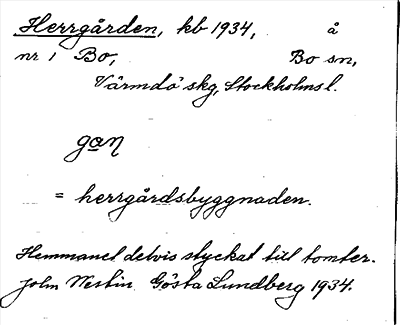 Herrgården, kb 1934, å
nr 1 Bo, Bo sn,
Värmdö skg, Stockholms l.
gan
= herrgårdsbyggnaden.
Hemmanet delvis styckat till tomter.
John Westin. Gösta Lundberg 1934.